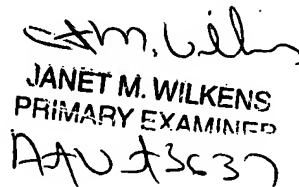 JANET M. WILKENS
PRIMARY EXAMINER
AAU 3637